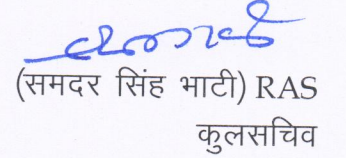 (समदर सिंह भाटी) RAS
कुलसचिव